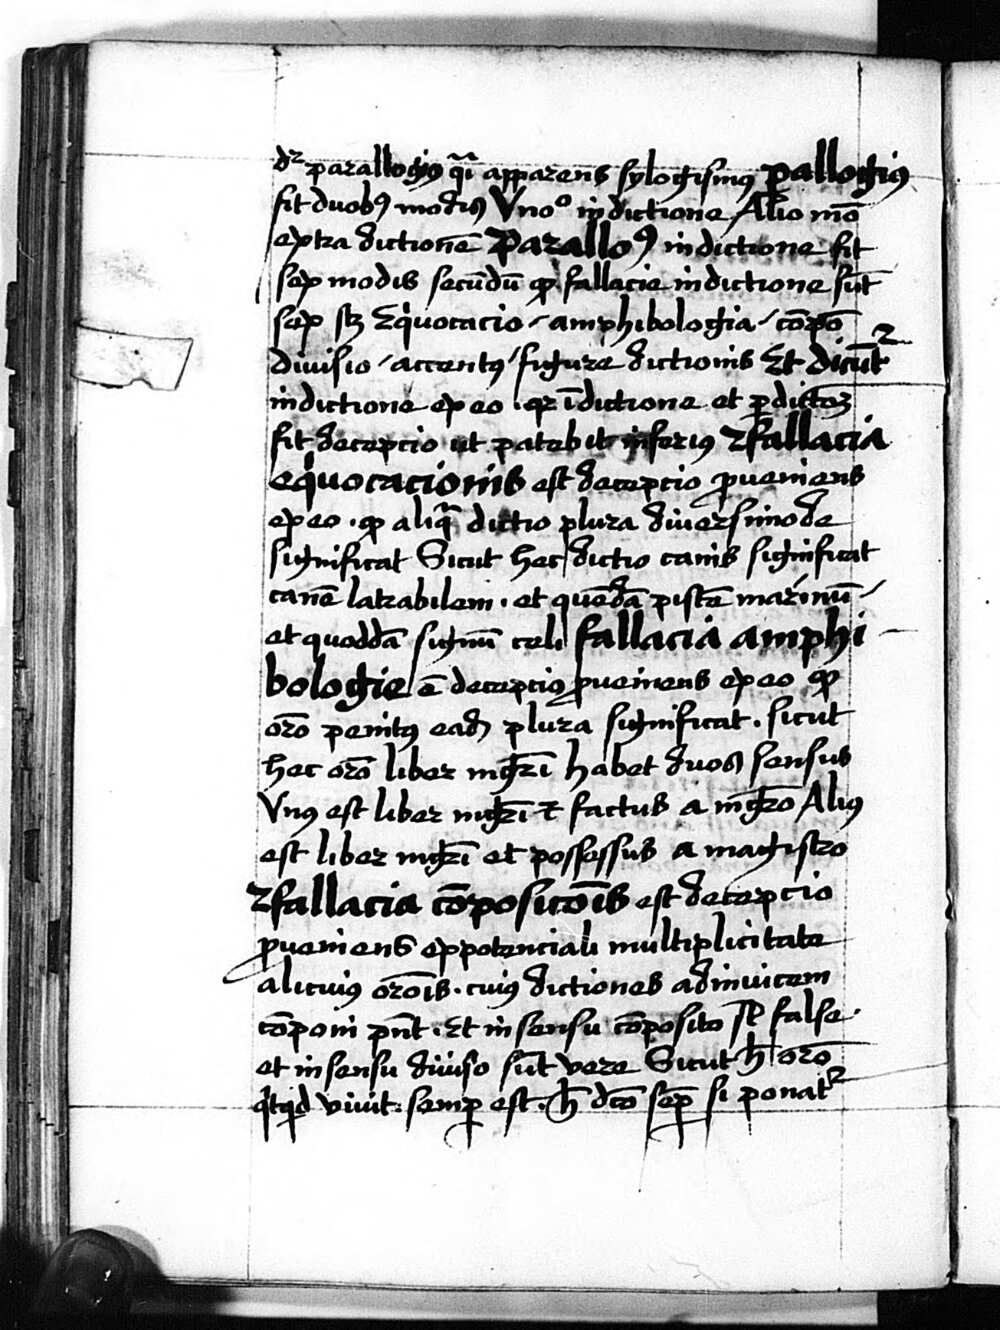 dr parallogꝰ qͣi apparens sylogismꝰ pallogiꝰ
fit duobꝰ modis Vnoº in dictione Alio mō
extra dictionē Paralloꝰ in dictione fit
sex modis secūdū ꝙ fallacie in dictione sūt
sex sꝫ Equocacio / amphibologia / cōpō
diuisio / accentꝰ / figure dictionis Et dicūtr
in dictione ex eo · qꝛ ī dictione et ꝑ dictōꝫ
fit decepcio ut patebit inferiꝰ fallacia
equocacionis est decepcio ꝓueniens
ex eo · ꝙ aliqͣ dictio plura diuersimode
significat Sicut hec dictio canis significat
canē latrabilem · et quedā piscē marinū
et quoddā signū celi fallacia amphi
bologie ē decepcio ꝓueniens ex eo ꝙ
orō penitꝰ eadꝫ plura significat · sicut
hec orō liber mgr̄i habet duos sensus
Vnꝰ est liber mgr̄i ⁊ factus a mgr̄o Aliꝰ
est liber mgr̄i et possessus a magistro
fallacia cōposicōis est decepcio
ꝓueniens ex potenciali multiplicitate
alicuiꝰ orōis · cuiꝰ dictiones adinuicem
cōponi pn̄t · Et in sensu cōposito st̄ false ·
et in sensu diuiso sūt vere Sicut h̄ orō
qͥtqͥd viuit · semꝑ est · h̄ dcō seꝑ si ponatr